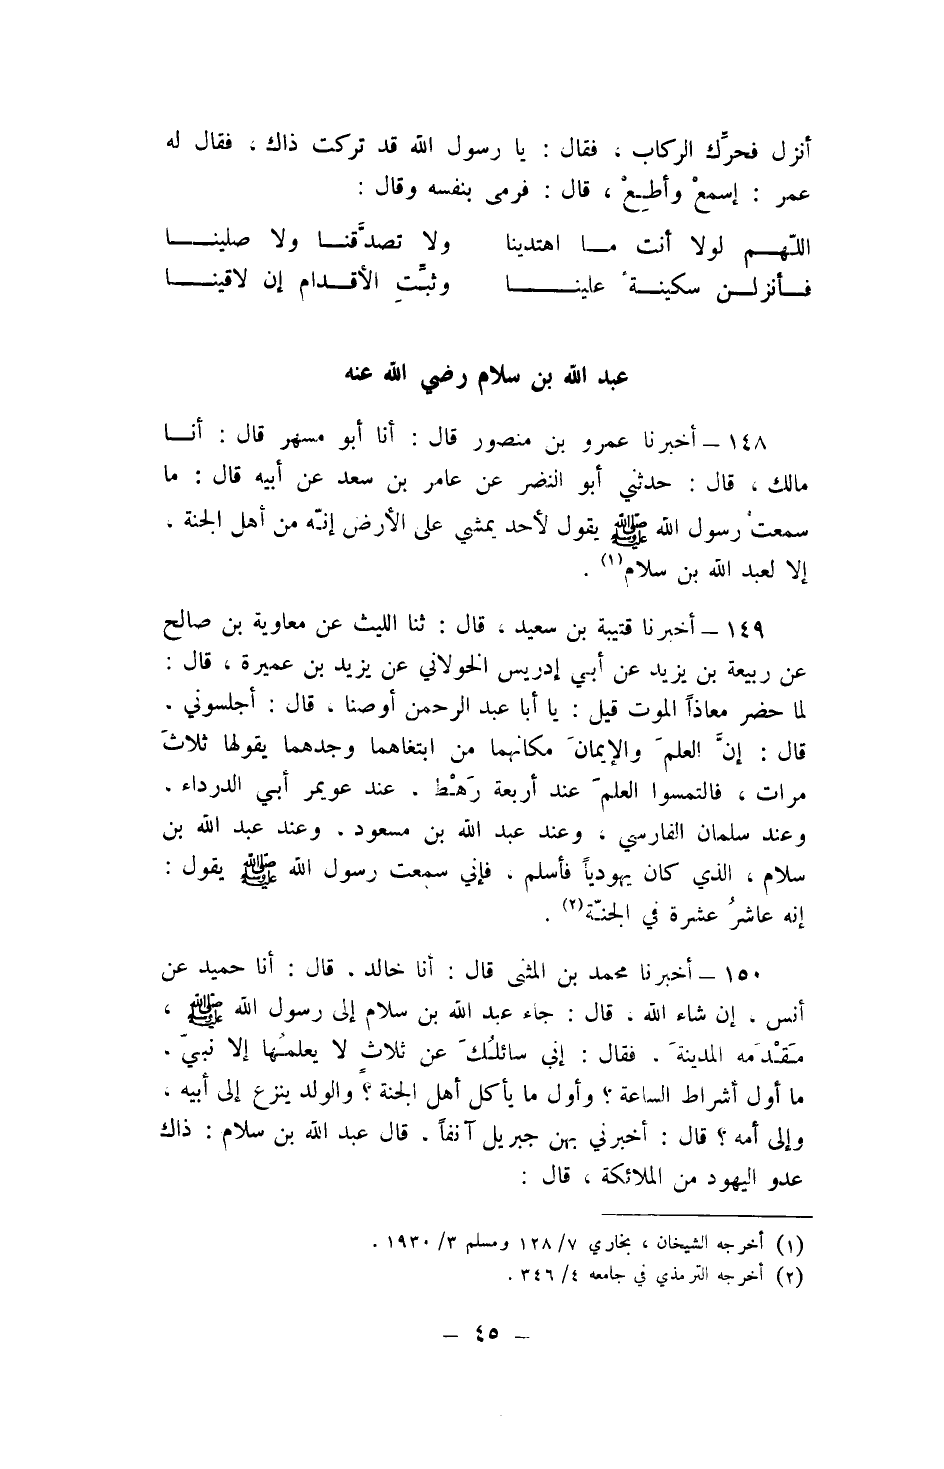 أنزل فحرِّك الركاب ، فقال : يا رسول الله قد تركت ذاك ، فقال له
عمر : إسمعْ وأطِعْ ، قال : فرمى بنفسه وقال :
اللّهـم لولا أنت مـا اهتدينا ولا تصدَّقنـا ولا صلينــا
فـأنزلـن سكينـةً علينـــا وثبِّت الأقـدام إن لاقينــا
عبد الله بن سلام رضي الله عنه
١٤٨ – أخبرنا عمرو بن منصور قال : أنا أبو مسهر قال : أنـا
مالك ، قال : حدثني أبو النضر عن عامر بن سعد عن أبيه قال : ما
سمعتُ رسول الله ﷺ يقول لأحد يمشي على الأرض إنّه من أهل الجنة .
إلا لعبد الله بن سلام(١) .
١٤٩ – أخبرنا قتيبة بن سعيد ، قال : ثنا الليث عن معاوية بن صالح
عن ربيعة بن يزيد عن أبي إدريس الخولاني عن يزيد بن عميرة ، قال :
لما حضر معاذاً الموت قيل : يا أبا عبد الرحمن أوصنا ، قال : أجلسوني .
قال : إنَّ العلمَ والإيمانَ مكانهما من ابتغاهما وجدهما يقولها ثلاثَ
مرات ، فالتمسوا العلمَ عند أربعة رَهْط . عند عويمر أبي الدرداء .
وعند سلمان الفارسي ، وعند عبد الله بن مسعود . وعند عبد الله بن
سلام ، الذي كان يهودياً فأسلم ، فإني سمعت رسول الله ﷺ يقول :
إنه عاشرُ عشرة في الجنّة(٢) .
١٥٠ – أخبرنا محمد بن المثنى قال : أنا خالد . قال : أنا حميد عن
أنس . إن شاء الله . قال : جاء عبد الله بن سلام إلى رسول الله ﷺ ،
مَقْدَمه المدينةَ . فقال : إني سائلُكَ عن ثلاثٍ لا يعلمُها إلا نبيّ .
ما أول أشراط الساعة ؟ وأول ما يأكل أهل الجنة ؟ والولد ينزع إلى أبيه ،
وإلى أمه ؟ قال : أخبرني بهن جبريل آنفاً . قال عبد الله بن سلام : ذاك
عدو اليهود من الملائكة ، قال :
(١) أخرجه الشيخان ، بخاري ٧/ ١٢٨ ومسلم ٣/ ١٩٣٠ .
(٢) أخرجه الترمذي في جامعه ٤/ ٣٤٦ .
– ٤٥ –